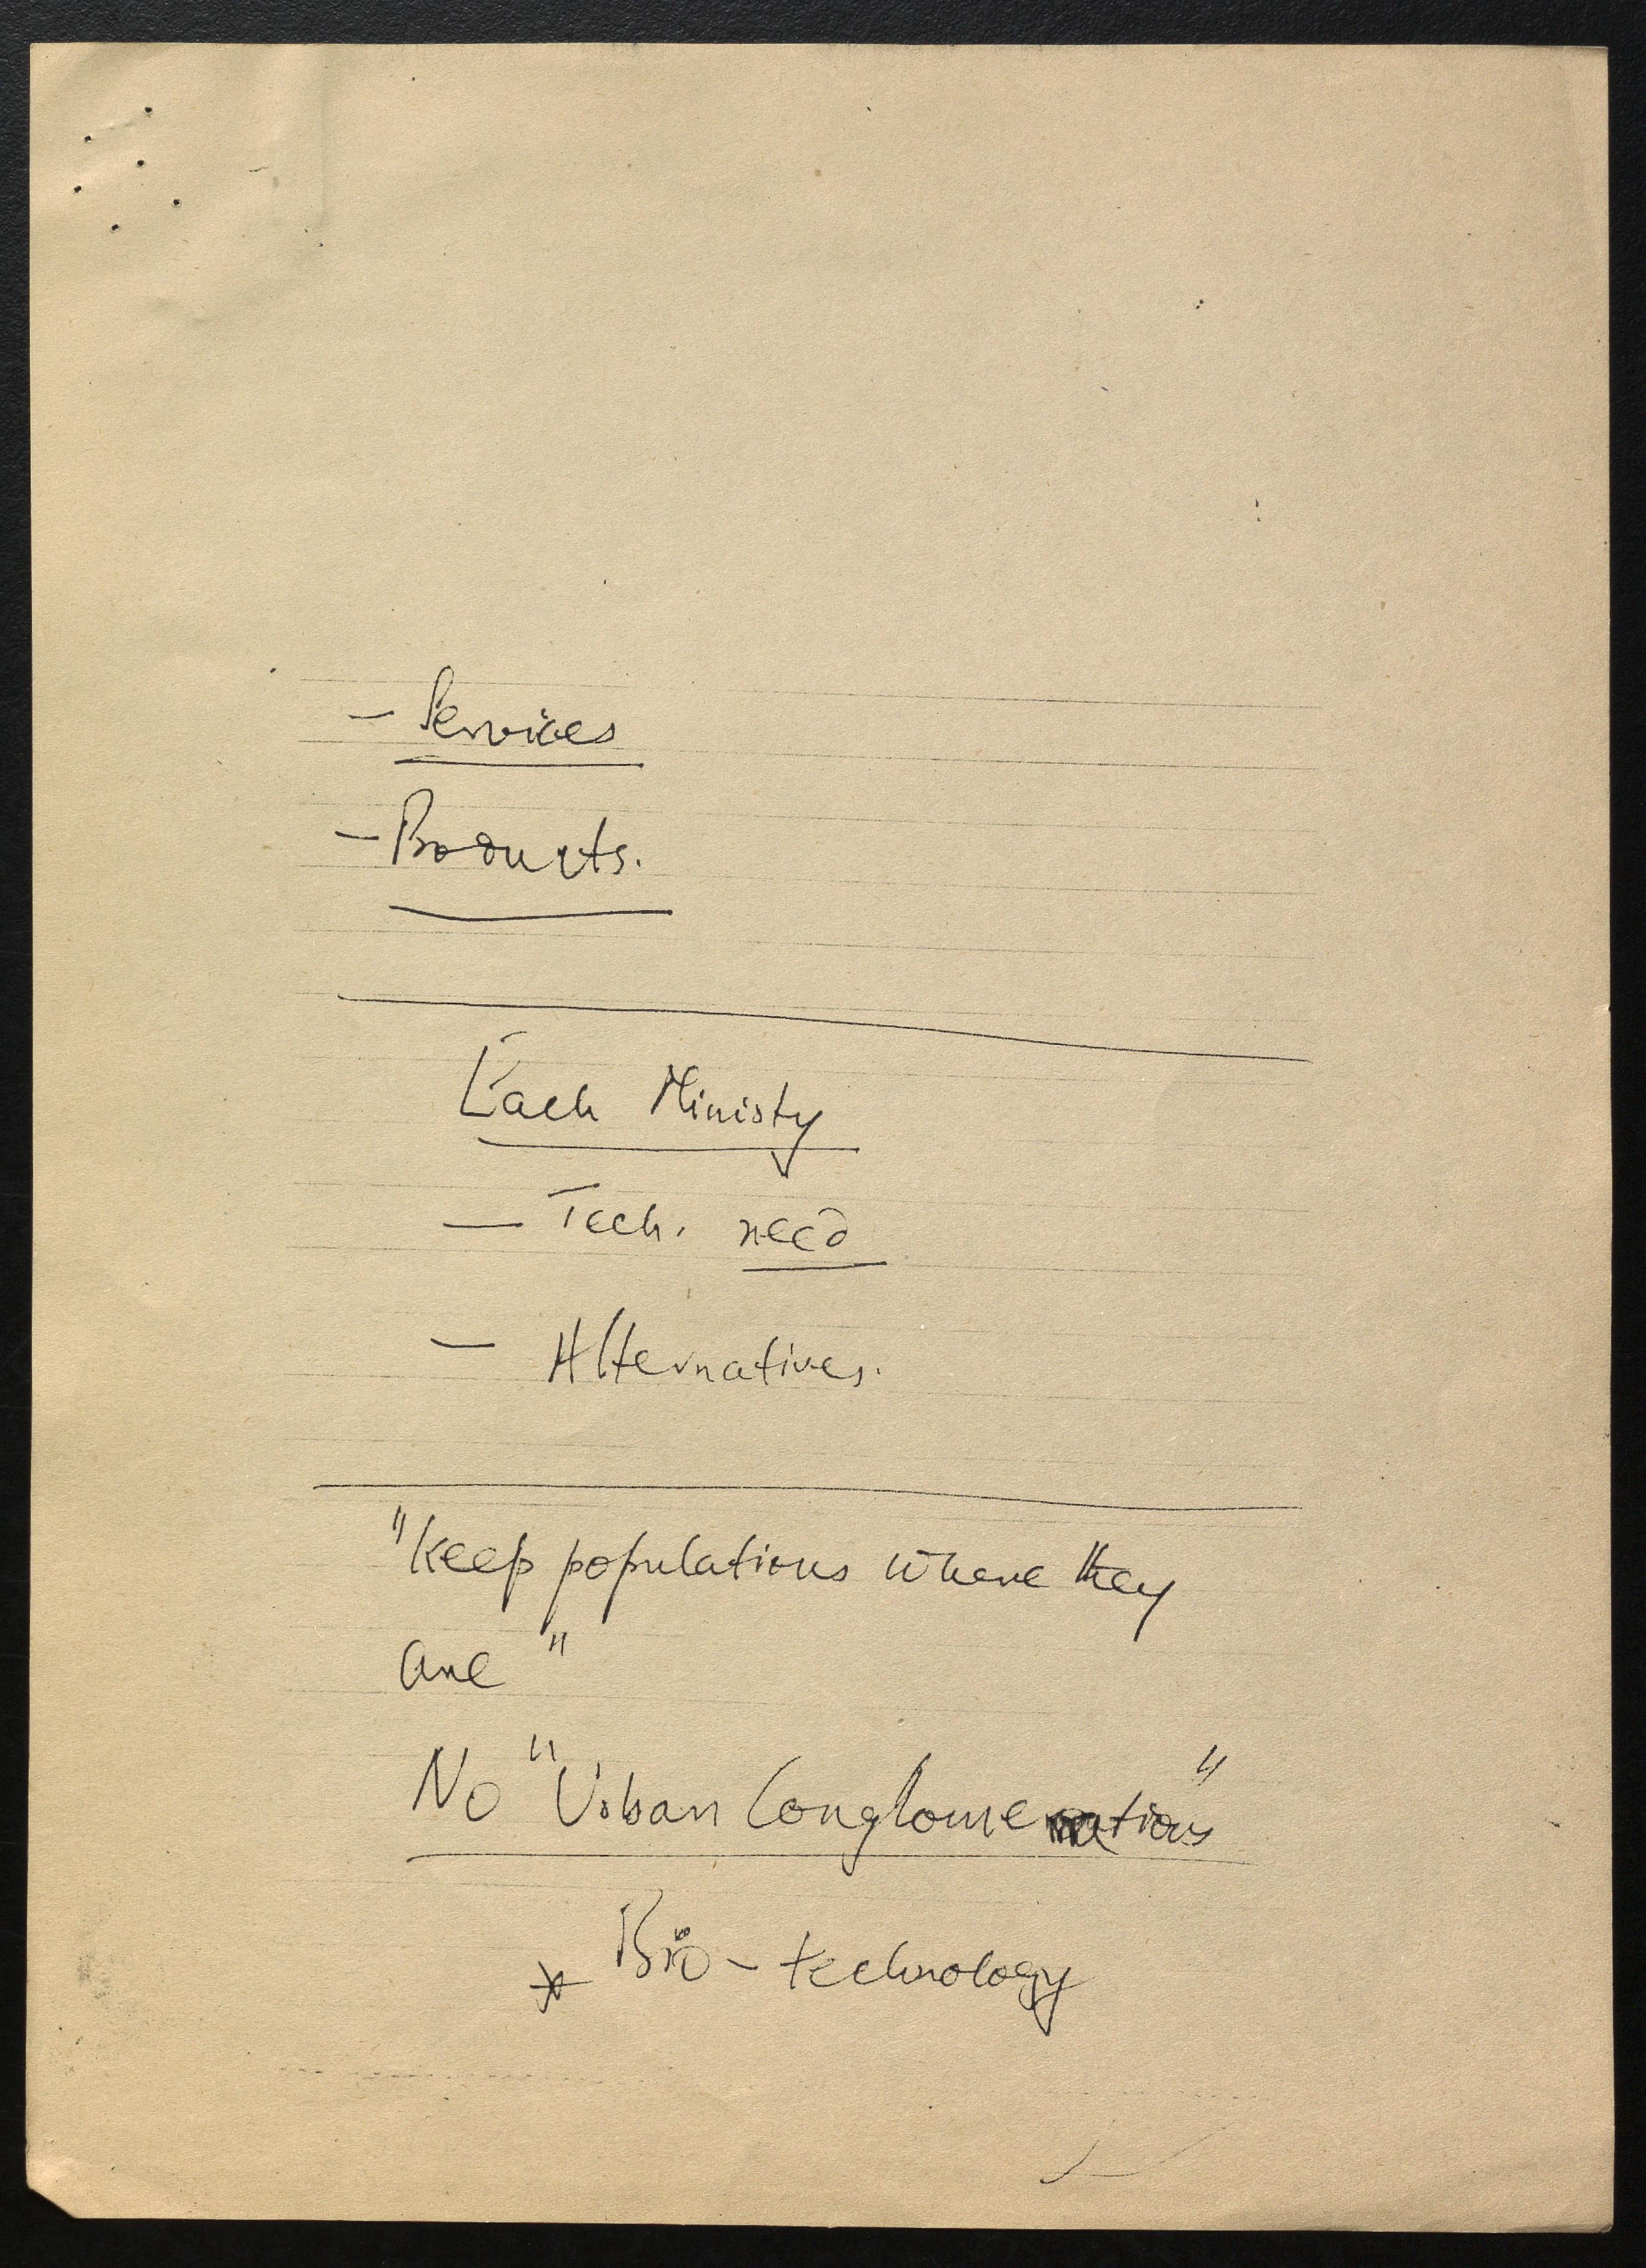 - Services
- Products.
Each Ministy
- Tech. need
- Alternatives.
"Keep populations where they
are"
No "Urban Conglomerations"
* Bio-technology